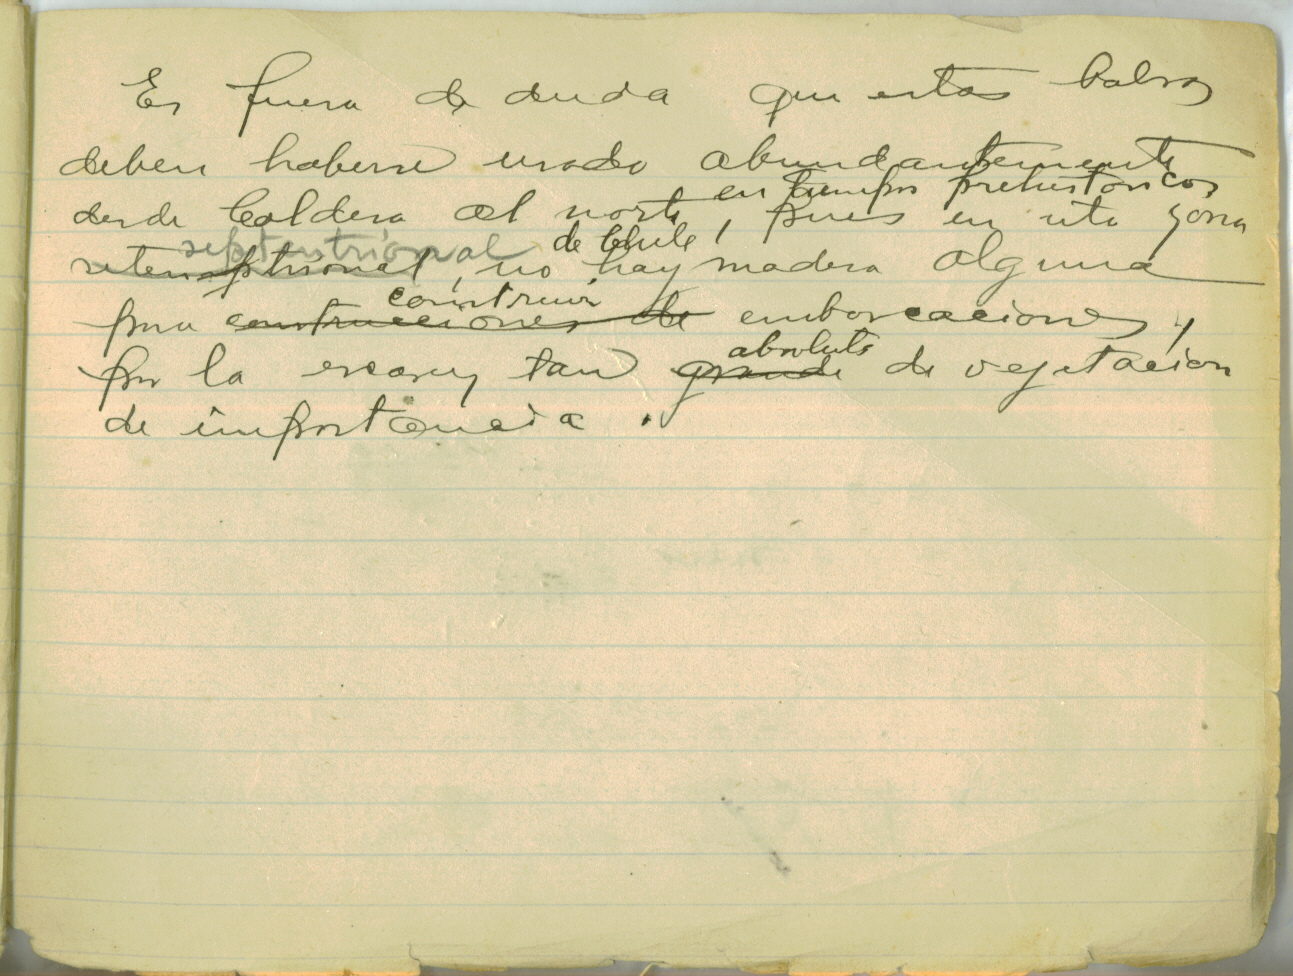 Es fuera de duda que estas balsas
deben haberse usado abundantemente
en tiempos prehistóricos
desde Caldera al norte, pues en esta zona
septentrional de Chile
setemptrional, no hay madera alguna
construir
para construcciones de embarcaciones,
absoluta
por la escasez tan grande de vejetación
de importancia.